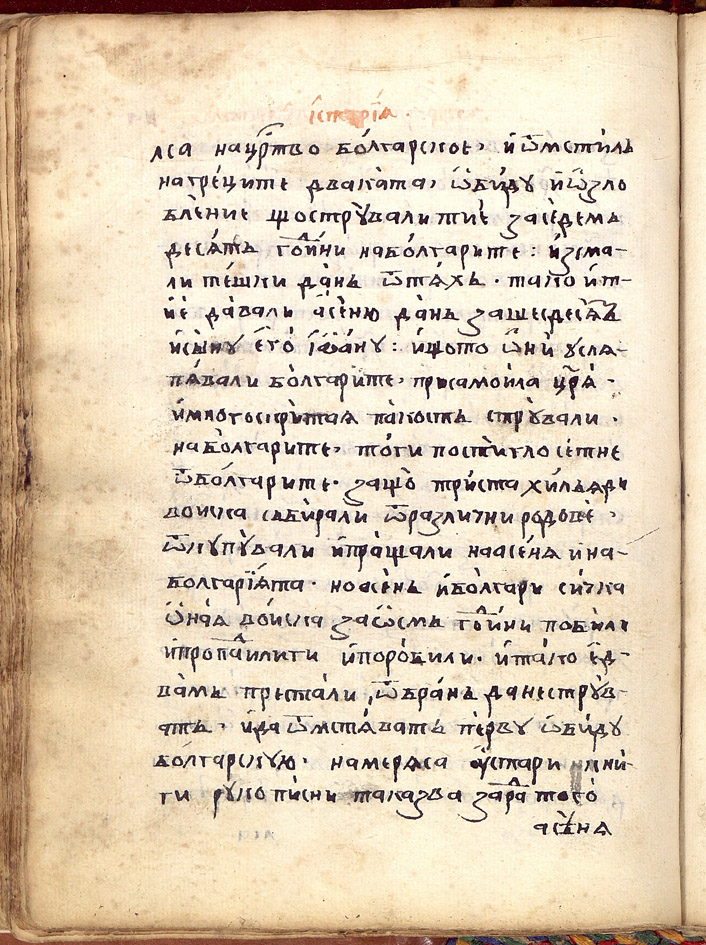 історїа
лса нацр҃тво болгарское, и ѿмстилъ
на греците дваката, ѡбиду и ѡзло
бление що стрꙋвали тиѐ за седемъ
десять годⷣини на болгарите : и зема-
ли тешки данъ ѿ тѧхъ. тако и т-
иѐ давали асѐню данъ за шесдесять
и сыну его іѡану : и що то ѡни ꙋсля-
пѧвали болгарите, при самоила црѧ҃.
и много сфитая пакость стрꙋвали.
на болгарите, тоги постигло сетне
ѿ болгарите. защо триста хилѧди
воиска сабирали ѿ различни родове,
ѿкупꙋвали и пращали на асенѧ и на
болгарїата. но асень и болгари сичка
ѡнаѧ воиска за ѡсмъ годⷣини побили
и пропадⷣилити и поробили. и тако ед-
вамъ престали ѿ бранъ да не стрꙋв-
ать, и да ѿмстѧвать перву ѡбиду
болгарскую. намерѧса ꙋ стари книи-
ги рꙋкописни та казва зарадⷣ тогѡ
асѣнѧ